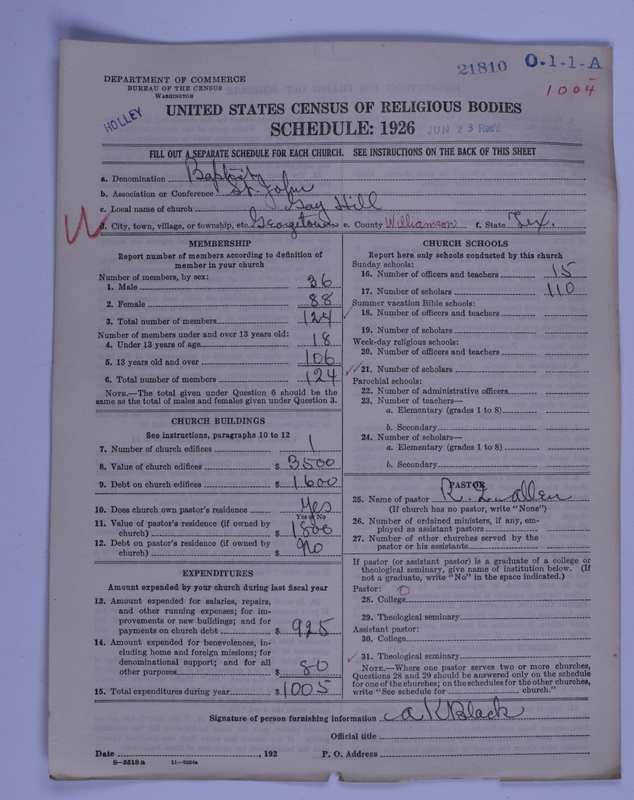 21810 O-1-1-A
1004
DEPARTMENT OF COMMERCE
BUREAU OF THE CENSUS
WASHINGTON
HOLLEY
UNITED STATES CENSUS OF RELIGIOUS BODIES
SCHEDULE: 1926 JUN 23
FILL OUT A SEPARATE SCHEDULE FOR EACH CHURCH. SEE INSTRUCTIONS ON THE BACK OF THIS SHEET
a. Denomination Baptist
b. Association or Conference St. John
c. Local name of church Gay Hill
d. City, town, village, or township, etc. Georgetown e. County Williamson f. State Tex.
MEMBERSHIP
Report number of members according to definition of
member in your church
Number of members, by sex:
1. Male 36
2. Female 88
3. Total number of members 124
Number of members under and over 13 years old:
4. Under 13 years of age 18
5. 13 years old and over 106
6. Total number of members 124
NOTE.—The total given under Question 6 should be the
same as the total of males and females given under Question 3.
CHURCH BUILDINGS
See instructions, paragraphs 10 to 12
7. Number of church edifices 1
8. Value of church edifices $ 3500
9. Debt on church edifices $ 1600
10. Does church own pastor's residence Yes
Yes or No
11. Value of pastor's residence (if owned by
church) $ 1800
12. Debt on pastor's residence (if owned by
church) $ No
EXPENDITURES
Amount expended by your church during last fiscal year
13. Amount expended for salaries, repairs,
and other running expenses; for im-
provements or new buildings; and for
payments on church debt $ 925
14. Amount expended for benevolences, in-
cluding home and foreign missions; for
denominational support; and for all
other purposes $ 80
15. Total expenditures during year $ 1005
CHURCH SCHOOLS
Report here only schools conducted by this church
Sunday schools:
16. Number of officers and teachers 15
17. Number of scholars 110
Summer vacation Bible schools:
18. Number of officers and teachers
19. Number of scholars
Week-day religious schools:
20. Number of officers and teachers
21. Number of scholars
Parochial schools:
22. Number of administrative officers
23. Number of teachers—
a. Elementary (grades 1 to 8)
b. Secondary
24. Number of scholars—
a. Elementary (grades 1 to 8)
b. Secondary
PASTOR
25. Name of pastor R. L. Allen
(If church has no pastor, write "None")
26. Number of ordained ministers, if any, em-
ployed as assistant pastors
27. Number of other churches served by the
pastor or his assistants
If pastor (or assistant pastor) is a graduate of a college or
theological seminary, give name of institution below. (If
not a graduate, write "No" in the space indicated.)
Pastor: O
28. College
29. Theological seminary
Assistant pastor:
30. College
31. Theological seminary
NOTE.—Where one pastor serves two or more churches,
Questions 28 and 29 should be answered only on the schedule
for one of the churches; on the schedules for the other churches,
write "See schedule for church."
Signature of person furnishing information A K Black
Official title
Date , 192 P. O. Address
8-5518a 11-9084a